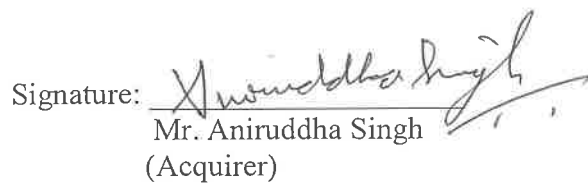 Signature: Aniruddha Singh
Mr. Aniruddha Singh
(Acquirer)